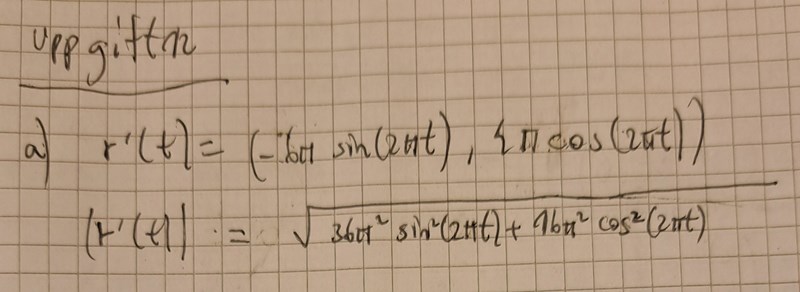 Uppgift 2
a) r'(t) = (-6π sin(2πt), 4π cos(2πt))
|r'(t)| = √36π² sin²(2πt) + 16π² cos²(2πt)